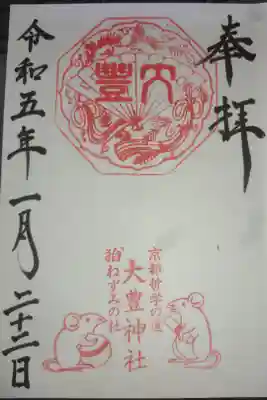 奉拝
大豐
京都哲学の道
大豊神社
狛ねずみの社
令和五年一月二十二日